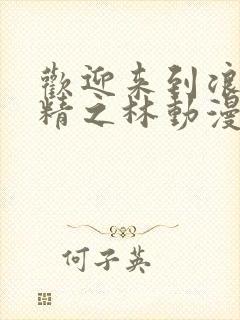 歡迎来到浪
精之林動漫
何子英